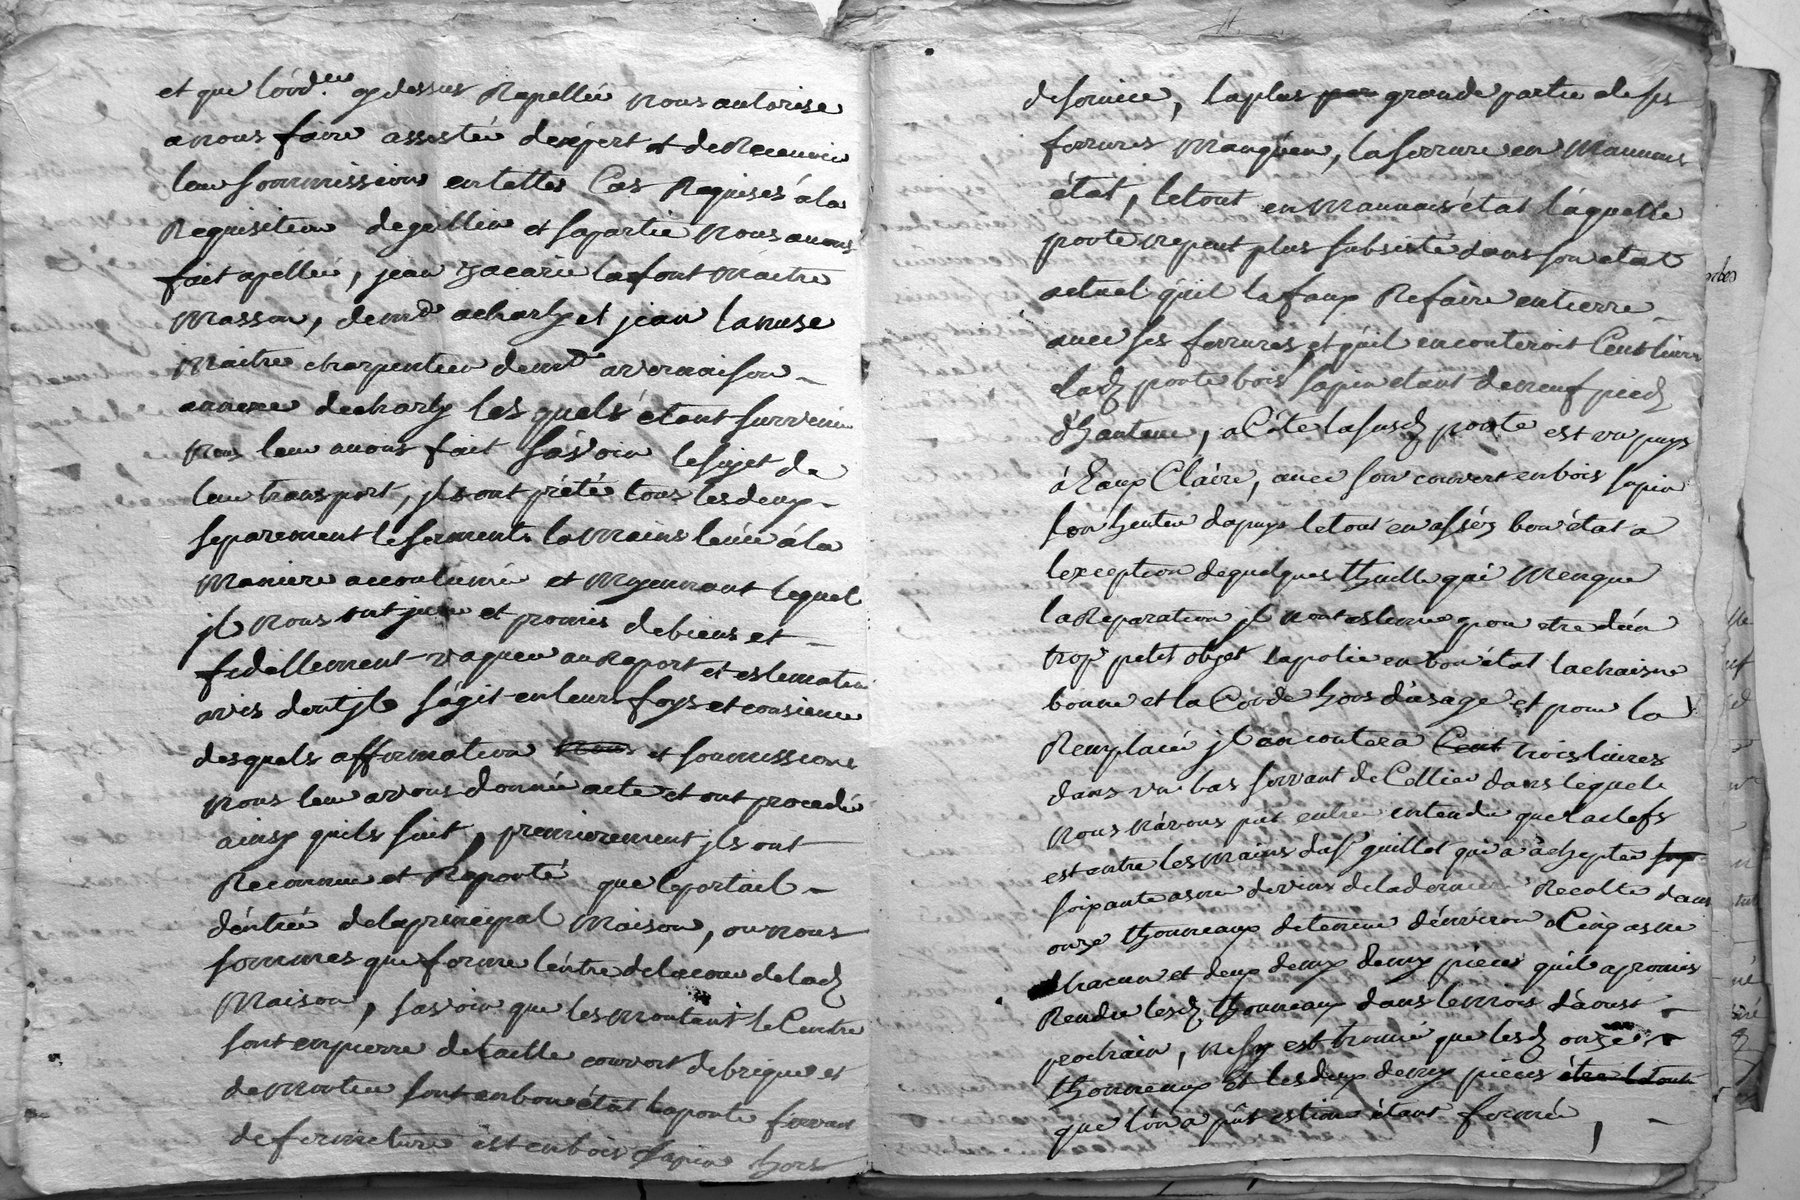 et que l'ord.ce cy dessus Rapellée nous autorise
a nous faire assisté dexpert et de Recevoir
leur sommissions en telles Cas Requises á la
Requisition de guillin et sa partie nous avons
fait apellée, jean Zacarie lafont Maitre
Masson, demrt a charly et jean lanuse
Maitre charpentier demrt a vernaison
annexe de charly les quels étant survenu
Nous leur avons fait sávoir le sujet de
leur transport, jls ont prété tous les deux
separement le serment la Mains levée á la
Maniere accoutumée et Moyennant lequel
jls Nous ont juré et promis de biens et
fidellement vaquer au Raport et estimation
avis dont jls ságit en leurs foys et consience
desquels affirmation nous et soumissions
nous leur avons donnée acte et ont procedé
ainsy quils suit, premierement jls ont
Reconnue et Raporté que le portail
déntrée de la principal Maison, ou nous
sommes que forme léntre de lacour de lad
Maison, savoir que les Montant le Centre
sont en pierre de taille couvert de brique et
de mortier sont en bon état la porte servant
de fermeture est en bois sapin hors
de service, la plus par grande partie de ses
ferrures Manquen, la serrure en Mauvais
état, le tout en Mauvais état láquelle
porte ne peut plus subsisté dans son etat
actuel quil la faux Refaire entierre
avec ses ferrures et quil en couteroit Cent livres
lad porte bois sapin etant de neuf pied
d'hauteur, a Côté la susd porte est un puys
á Eaux Claire, avec son couvert en bois sapin
le tout en assés bon état a
lexception de quelques thuille qui Menque
la Reparation jls nont estimé pour etre dún
trop petit objet la polie en bon état la chaisne
bonne et la Corde hors dúsage et pour la
Remplacée jl en coutera Cent trois livres
dans un bas servant de Cellier dans lequel
nous návons put entre entendu que la clefs
est entre les mains du Sr guillot qui a áchepté
soixante asnée de vin de la derniere Recolte dans
onze thonneaux de tenue dénviron Cinq asnée
chacun et deux demy piéces quil a promis
Rendre lesd thonneaux dans le mois dáoust
prochain, Resy est trouvé que lesd onze
thonneaux et les deux demy pieces étre le tout
que lón a pût estimé étant fermée,